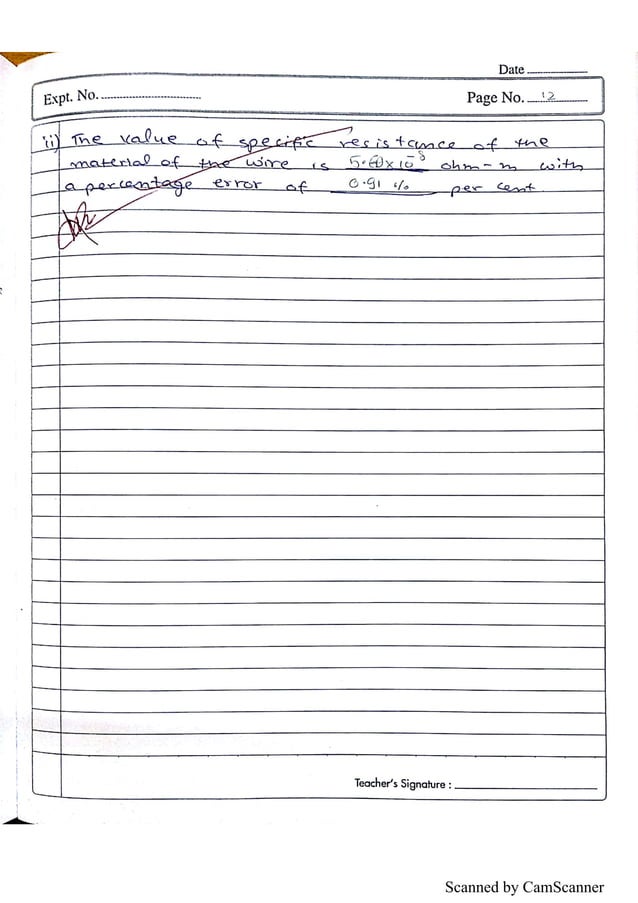 Date
Expt. No.
Page No. 12
ii) The value of specific resistance of the
material of the wire is 5.60×10⁻⁸ ohm-m with
a percentage error of 0.91 % per cent
Teacher's Signature :
Scanned by CamScanner